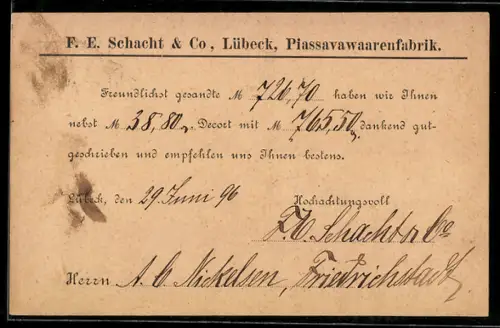 F. E. Schacht & Co., Lübeck, Piassavawaarenfabrik.
Freundlichst gesandte M 726,70 haben wir Ihnen
nebst M 38,80 Decort mit M 765,50 dankend gut-
geschrieben und empfehlen uns Ihnen bestens.
Lübeck, den 29 Juni 96 Hochachtungsvoll
F. E. Schacht & Co
Herrn A. C. Nickelsen, Friedrichstadt